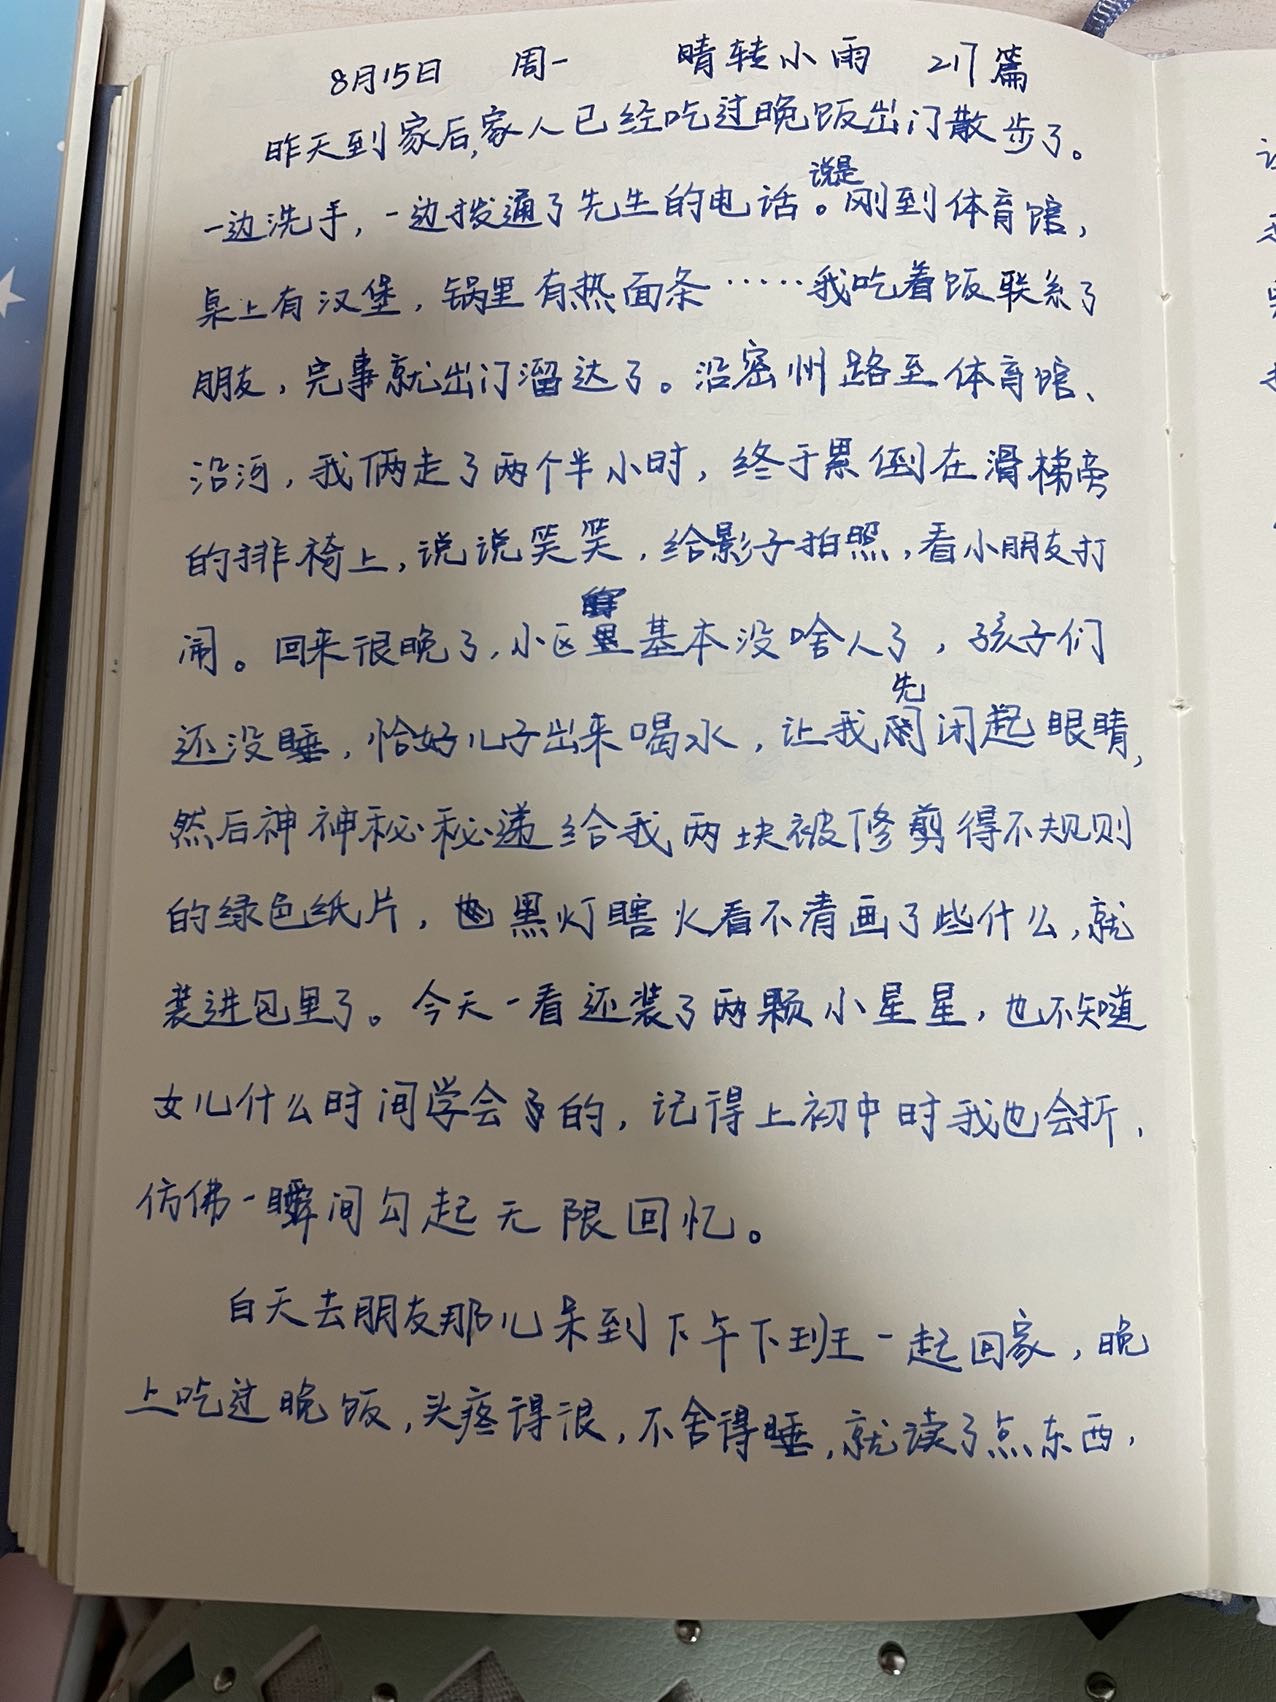 8月15日 周一 晴转小雨 217篇
昨天到家后,家人已经吃过晚饭出门散步了。
一边洗手，一边拨通了先生的电话。说是刚到体育馆，
桌上有汉堡，锅里有热面条……我吃着饭联系了
朋友，完事就出门溜达了。沿密州路至体育馆、
沿河，我俩走了两个半小时，终于累倒在滑梯旁
的排椅上，说说笑笑，给影子拍照，看小朋友打
闹。回来很晚了，小区里基本没啥人了，孩子们
还没睡，恰好儿子出来喝水，让我先闭起眼睛，
然后神神秘秘递给我两块被修剪得不规则
的绿色纸片，黑灯瞎火看不清画了些什么，就
装进包里了。今天一看还装了两颗小星星，也不知道
女儿什么时间学会的，记得上初中时我也会折，
仿佛一瞬间勾起无限回忆。
白天去朋友那儿呆到下午下班一起回家，晚
上吃过晚饭，头疼得很，不舍得睡，就读了点东西，